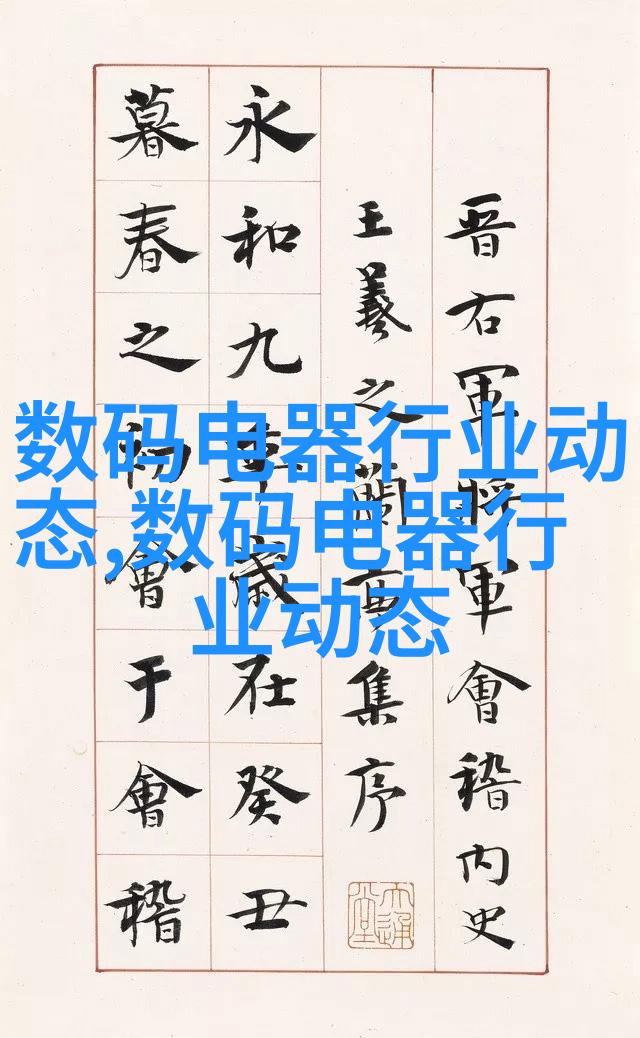 晋右軍將軍會稽内史
王羲之蘭亭集序
永和九年歲在癸丑
暮春之初會于會稽
数码电器行业动
态,数码电器行
业动态